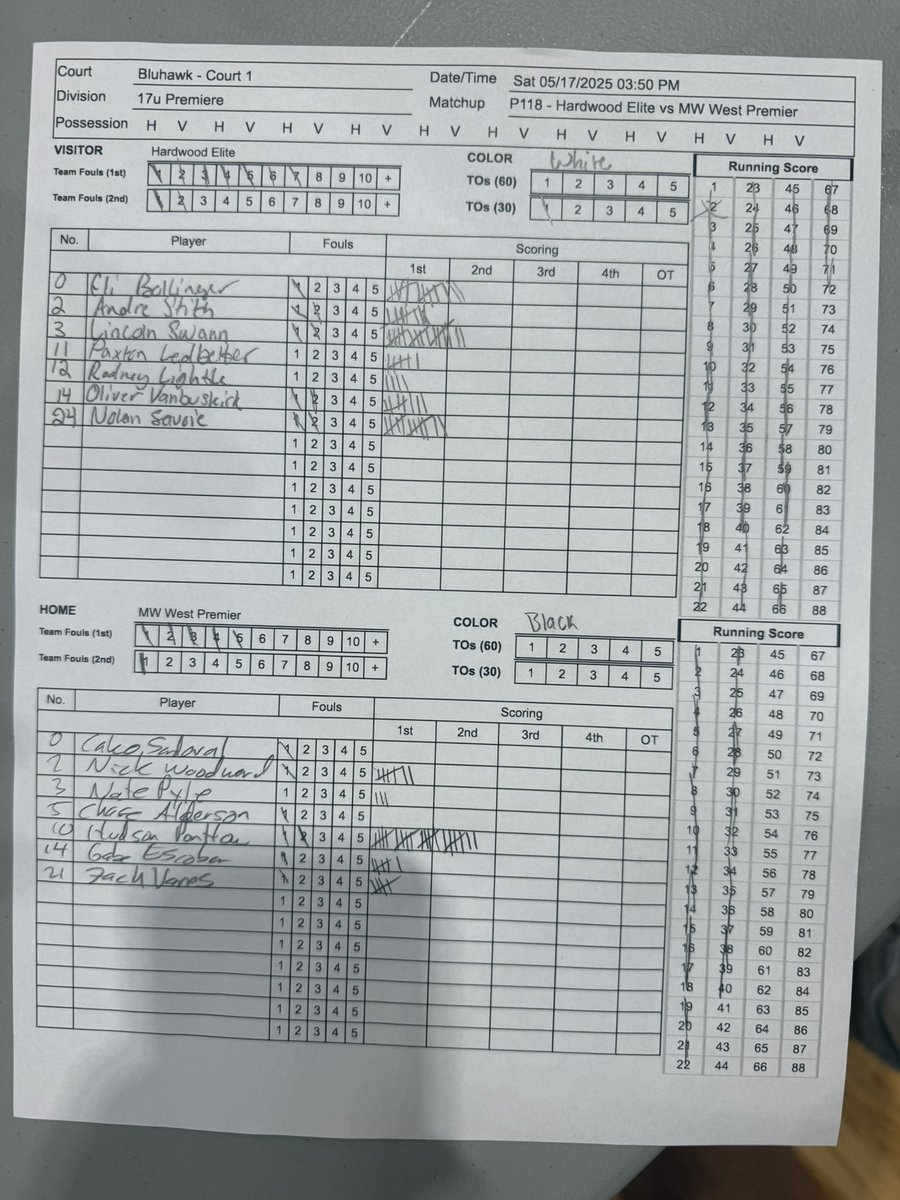 Court Bluhawk - Court 1 Date/Time Sat 05/17/2025 03:50 PM
Division 17u Premiere Matchup P118 - Hardwood Elite vs MW West Premier
Possession H V H V H V H V H V H V H V H V H V H V
VISITOR Hardwood Elite COLOR White Running Score
Team Fouls (1st) 1 2 3 4 5 6 7 8 9 10 + TOs (60) 1 2 3 4 5
Team Fouls (2nd) 1 2 3 4 5 6 7 8 9 10 + TOs (30) 1 2 3 4 5
No. Player Fouls Scoring
1st 2nd 3rd 4th OT
0 Eli Bollinger 1 2 3 4 5
2 Andre Stith 1 2 3 4 5
3 Lincoln Swann 1 2 3 4 5
11 Paxton Ledbetter 1 2 3 4 5
12 Rodney Lightle 1 2 3 4 5
14 Oliver Vanbuskirk 1 2 3 4 5
24 Nolan Savoie 1 2 3 4 5
1 2 3 4 5
1 2 3 4 5
1 2 3 4 5
1 2 3 4 5
1 2 3 4 5
1 2 3 4 5
1 2 3 4 5
1 23 45 67
2 24 46 68
3 25 47 69
4 26 48 70
5 27 49 71
6 28 50 72
7 29 51 73
8 30 52 74
9 31 53 75
10 32 54 76
11 33 55 77
12 34 56 78
13 35 57 79
14 36 58 80
15 37 59 81
16 38 60 82
17 39 61 83
18 40 62 84
19 41 63 85
20 42 64 86
21 43 65 87
22 44 66 88
HOME MW West Premier COLOR Black Running Score
Team Fouls (1st) 1 2 3 4 5 6 7 8 9 10 + TOs (60) 1 2 3 4 5
Team Fouls (2nd) 1 2 3 4 5 6 7 8 9 10 + TOs (30) 1 2 3 4 5
No. Player Fouls Scoring
1st 2nd 3rd 4th OT
0 1 2 3 4 5
2 Nick Woodward 1 2 3 4 5
3 Nate Pyle 1 2 3 4 5
5 Chase Alderson 1 2 3 4 5
10 Hudson 1 2 3 4 5
14 Gabe Escobar 1 2 3 4 5
21 Zach 1 2 3 4 5
1 2 3 4 5
1 2 3 4 5
1 2 3 4 5
1 2 3 4 5
1 2 3 4 5
1 2 3 4 5
1 2 3 4 5
1 23 45 67
2 24 46 68
3 25 47 69
4 26 48 70
5 27 49 71
6 28 50 72
7 29 51 73
8 30 52 74
9 31 53 75
10 32 54 76
11 33 55 77
12 34 56 78
13 35 57 79
14 36 58 80
15 37 59 81
16 38 60 82
17 39 61 83
18 40 62 84
19 41 63 85
20 42 64 86
21 43 65 87
22 44 66 88